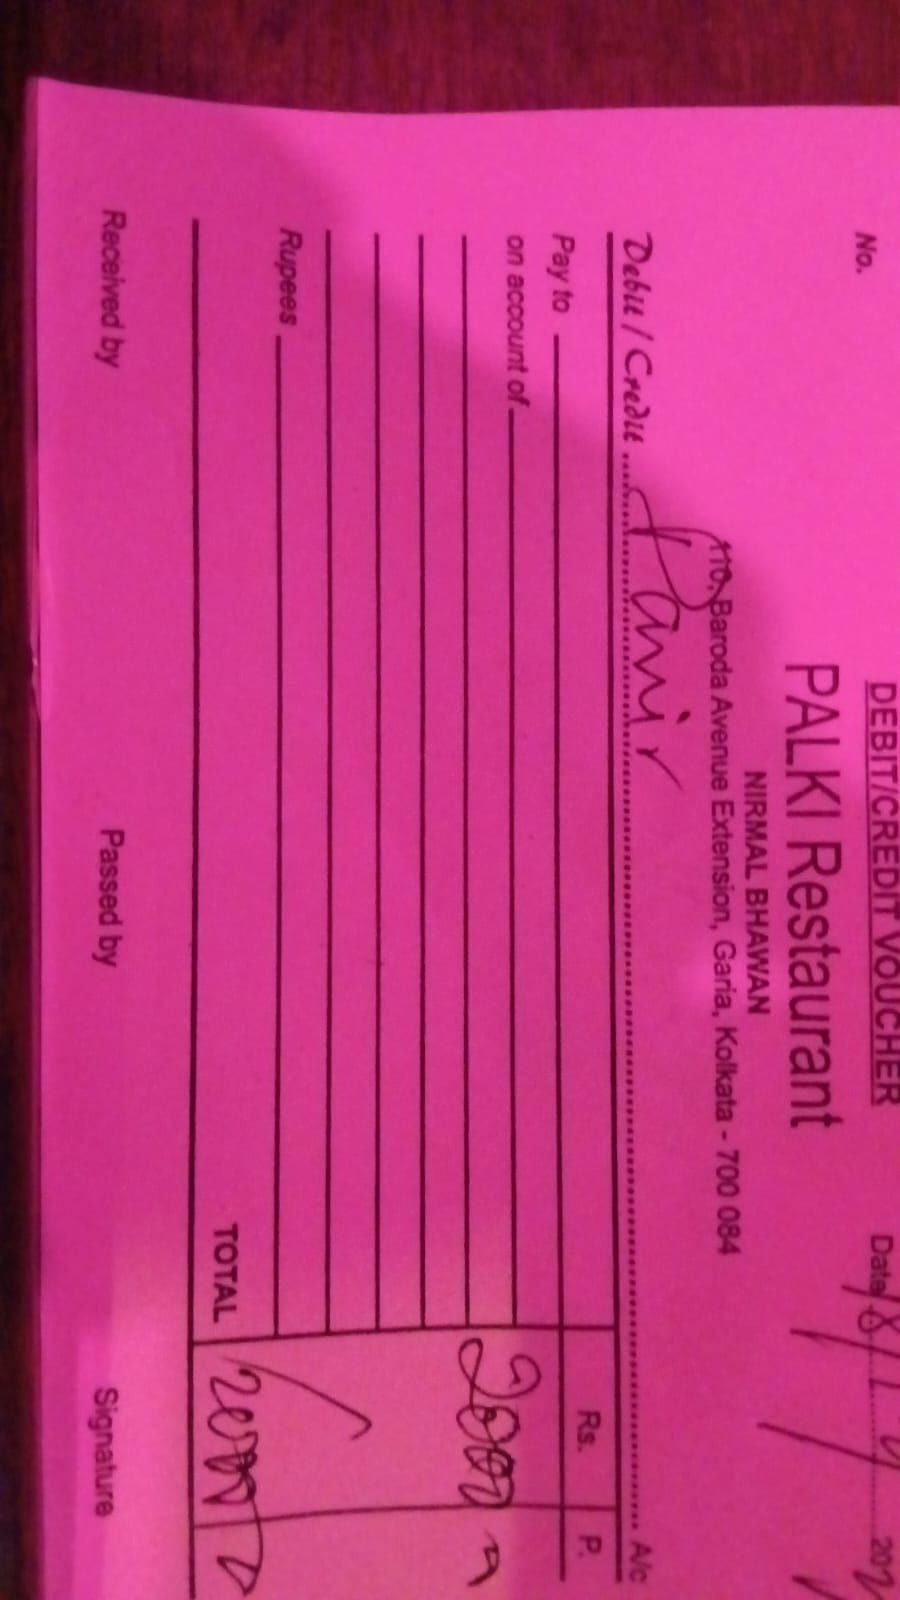 DEBIT/CREDIT VOUCHER
No.
Date 202
PALKI Restaurant
NIRMAL BHAWAN
110, Baroda Avenue Extension, Garia, Kolkata - 700 084
Debit / Credit Panir A/c
Rs. P.
Pay to
on account of
2000
Rupees
TOTAL 2000
Received by Passed by Signature